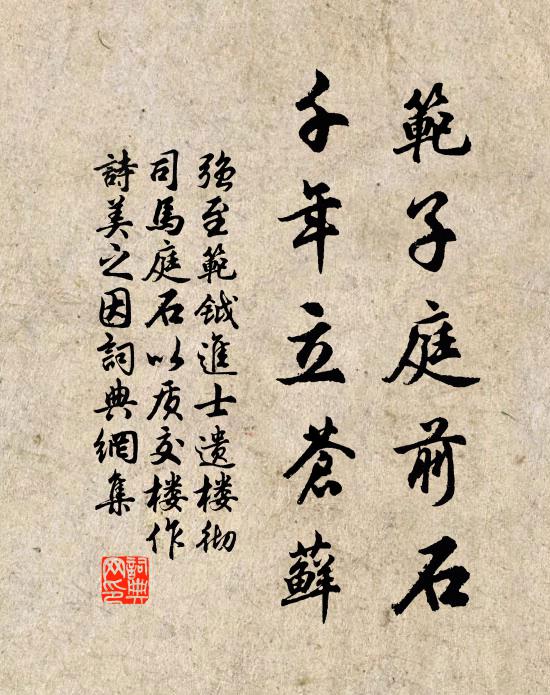 範子庭前石
千年立蒼蘚
強至範鉞進士遗楼彻
司馬庭石以质交楼作
詩美之因詞典網集
詞典
网印